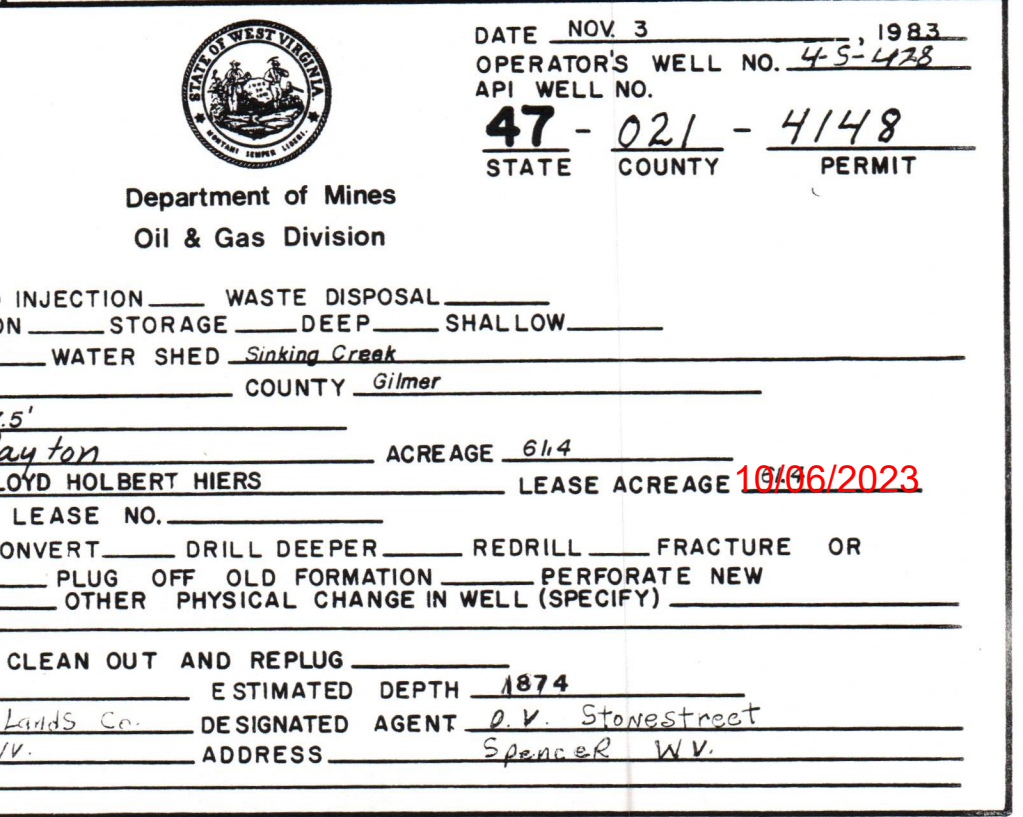 STATE OF WEST VIRGINIA
MONTANI SEMPER LIBERI.
Department of Mines
Oil & Gas Division
DATE NOV. 3, 1983
OPERATOR'S WELL NO. 4-S-428
API WELL NO.
47 - 021 - 4148
STATE COUNTY PERMIT
INJECTION WASTE DISPOSAL
ON STORAGE DEEP SHALLOW
WATER SHED Sinking Creek
COUNTY Gilmer
.5'
ayton ACREAGE 61.4
LOYD HOLBERT HIERS LEASE ACREAGE 61.4
10/06/2023
LEASE NO.
ONVERT DRILL DEEPER REDRILL FRACTURE OR
PLUG OFF OLD FORMATION PERFORATE NEW
OTHER PHYSICAL CHANGE IN WELL (SPECIFY)
CLEAN OUT AND REPLUG
ESTIMATED DEPTH 1874
Lands Co. DESIGNATED AGENT O. V. Stonestreet
ADDRESS Spencer WV.